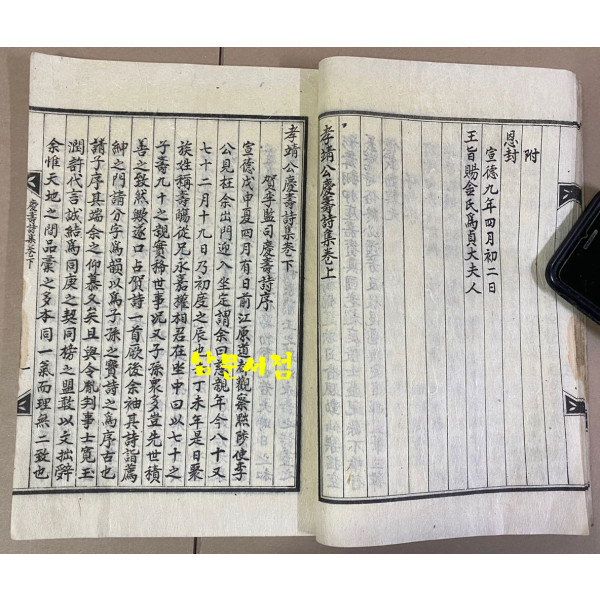 附
恩封
宣德九年四月初二日
王旨賜金氏爲貞大夫人
孝靖公慶壽詩集卷上
孝靖公慶壽詩集卷下
賀李監司慶壽詩序
宣德戊申夏四月有日前江原道都觀察黜陟使李
公見枉余出門迎入坐定謂余曰慈親年今八十又
七十二月十九日乃初度之辰也丁未年是日聚
族姓稱壽觴從兄永嘉權相君在坐中曰以七十之
子壽九十之親實稀世事況又子孫衆多豈先世積
善之致然歟遂口占賀詩一首厥後余袖其詩謁薦
紳之門請分字爲韻以爲子孫之寶詩之爲序古也
請子序其端余之仰慕又矣且與令胤判事士寬玉
潤許代言誠結爲同庚之契同榜之盟敢以文拙辭
余惟天地之間品彙之多本同一氣而理無二致也
慶壽詩集卷下
一
남문서점